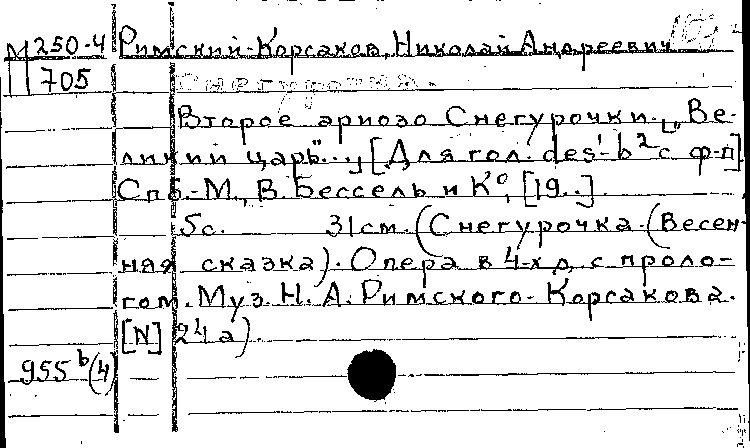 М 250-4 Римский-Корсаков, Николай Андреевич
П 705 Снегурочка.
Второе ариозо Снегурочки. „Ве-
ликий царь"...] [Для гол. des¹-b² с ф-п]
Спб.-М., В. Бессель и К°, [19..].
5с. 31см. (Снегурочка. (Весен-
няя сказка). Опера в 4-х д. с проло-
гом. Муз. Н. А. Римского-Корсакова.
[N] 24а).
955 b(4)